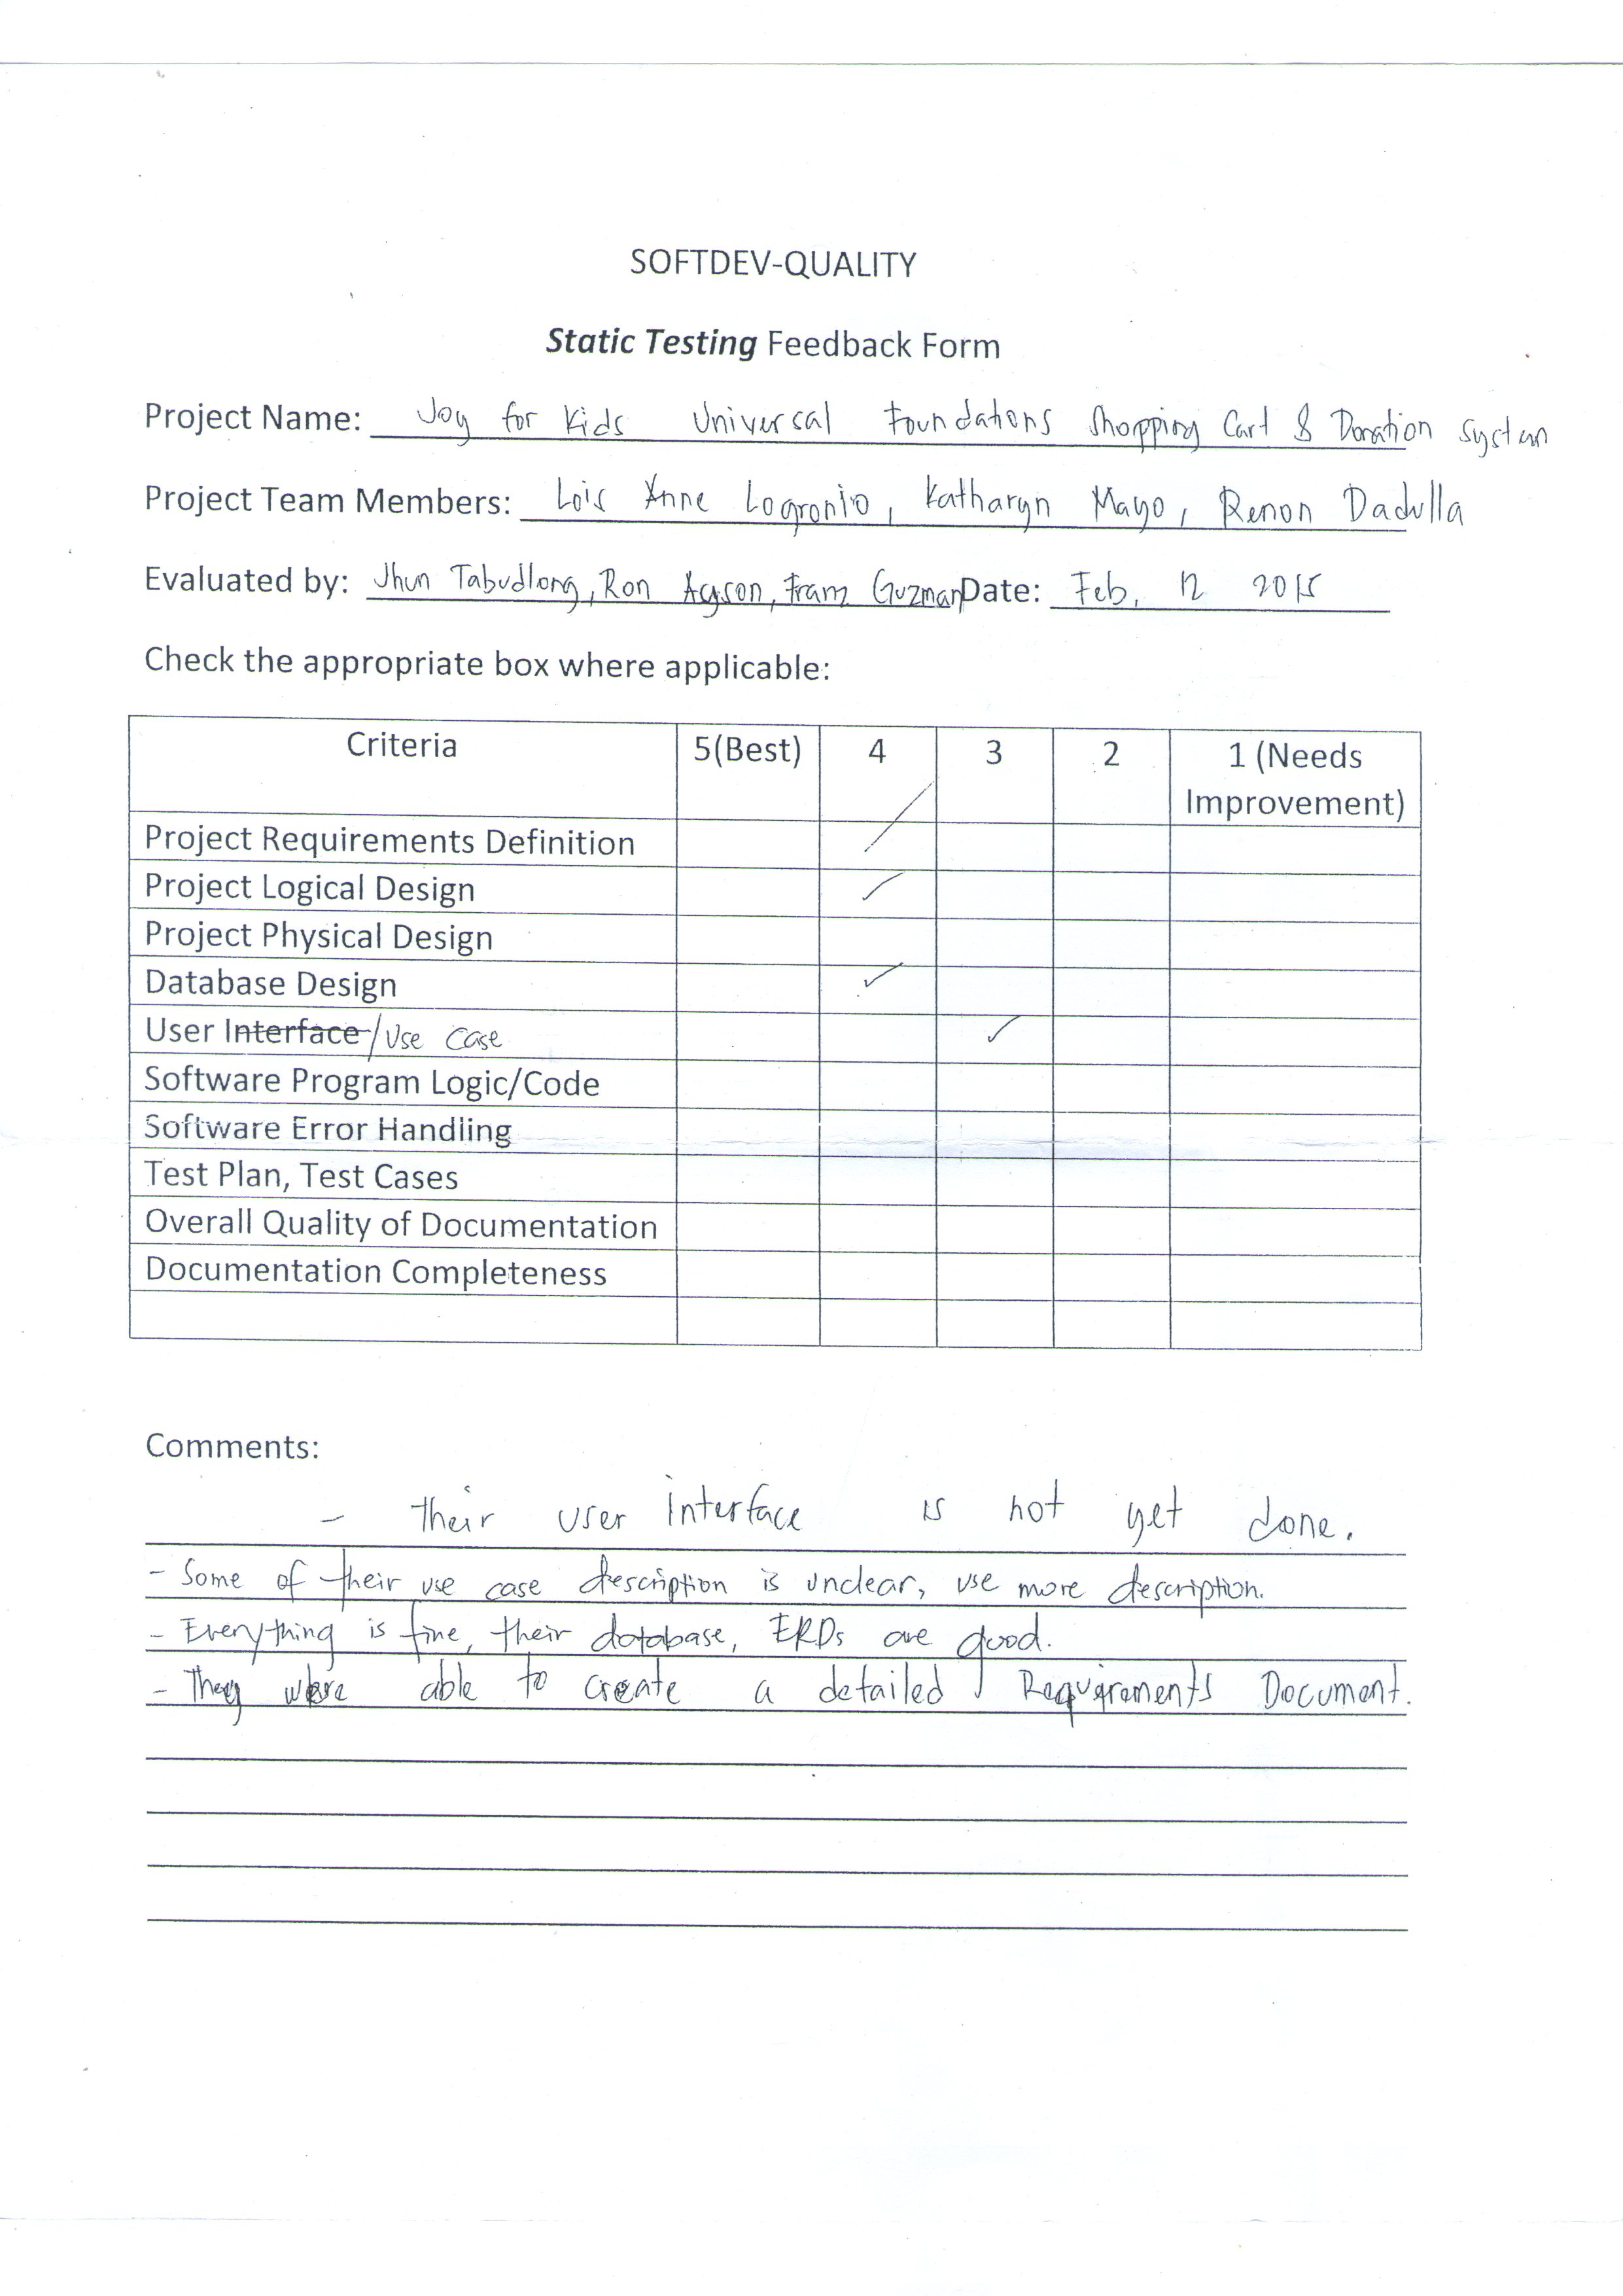 SOFTDEV-QUALITY
Static Testing Feedback Form
Project Name: Joy for Kids Universal Foundations Shopping Cart & Donation System
Project Team Members: Lois Anne Logronio, Katharyn Mayo, Renon Dadulla
Evaluated by: Jhun Tabudlong, Ron Agson, Franz Guzman Date: Feb. 12 2015
Check the appropriate box where applicable:
Criteria 5(Best) 4 3 2 1 (Needs
Improvement)
Project Requirements Definition
Project Logical Design
Project Physical Design
Database Design
User Interface/Use Case
Software Program Logic/Code
Software Error Handling
Test Plan, Test Cases
Overall Quality of Documentation
Documentation Completeness
Comments:
- their user interface is not yet done.
- Some of their use case description is unclear, use more description.
- Everything is fine, their database, ERDs are good.
- They were able to create a detailed Requirements Document.